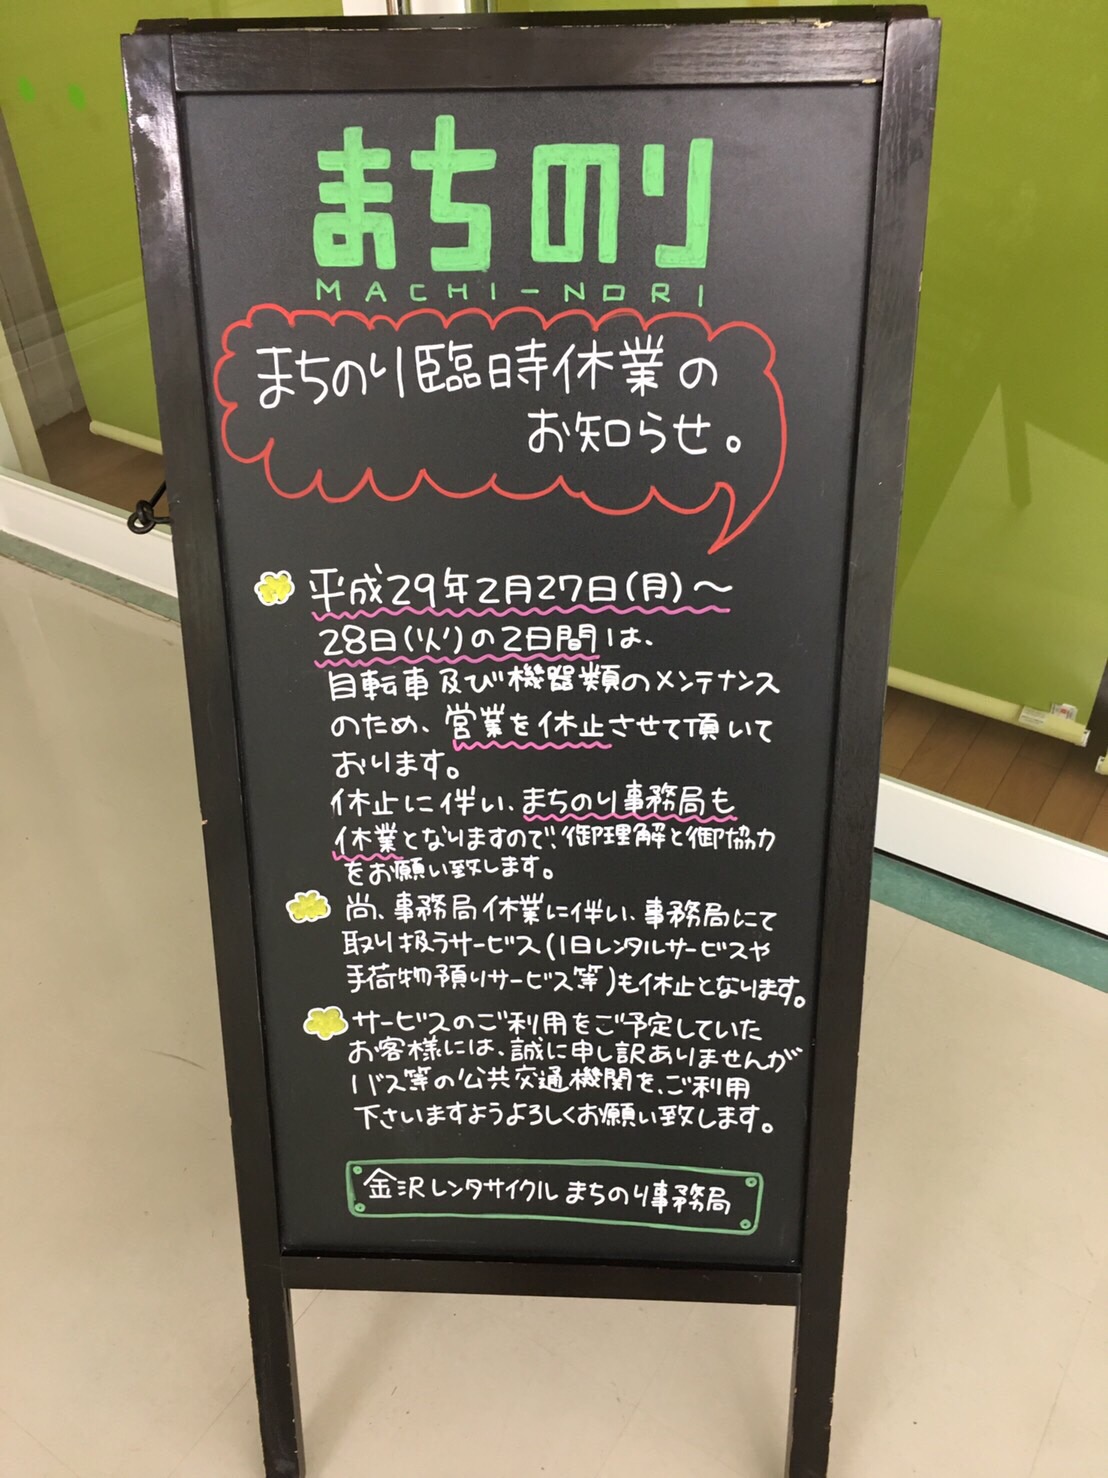 まちのり
MACHI-NORI
まちのり臨時休業の
お知らせ。
平成29年2月27日(月)～
28日(火)の2日間は、
自転車及び機器類のメンテナンス
のため、営業を休止させて頂いて
おります。
休止に伴い、まちのり事務局も
休業となりますので、御理解と御協力
をお願い致します。
尚、事務局休業に伴い、事務局にて
取り扱うサービス(1日レンタルサービスや
手荷物預りサービス等)も休止となります。
サービスのご利用をご予定していた
お客様には、誠に申し訳ありませんが
バス等の公共交通機関を、ご利用
下さいますようよろしくお願い致します。
金沢レンタサイクル まちのり事務局